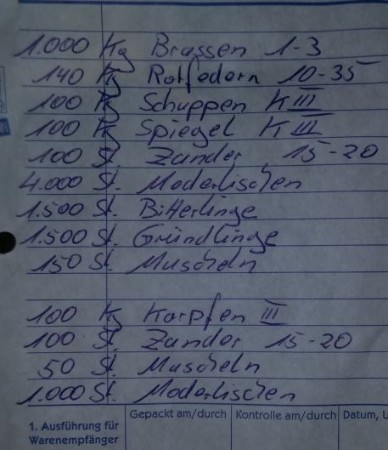 1.000 Kg Brassen 1-3
140 Kg Rotfedern 10-35
100 Kg Schuppen K III
100 Kg Spiegel K III
100 St. Zander 15-20
4.000 St. Moderlischen
1.500 St. Bitterlinge
1.500 St. Gründlinge
150 St. Muscheln
100 Kg Karpfen III
100 St. Zander 15-20
50 St. Muscheln
1.000 St. Moderlischen
1. Ausführung für Warenempfänger
Gepackt am/durch
Kontrolle am/durch
Datum, U